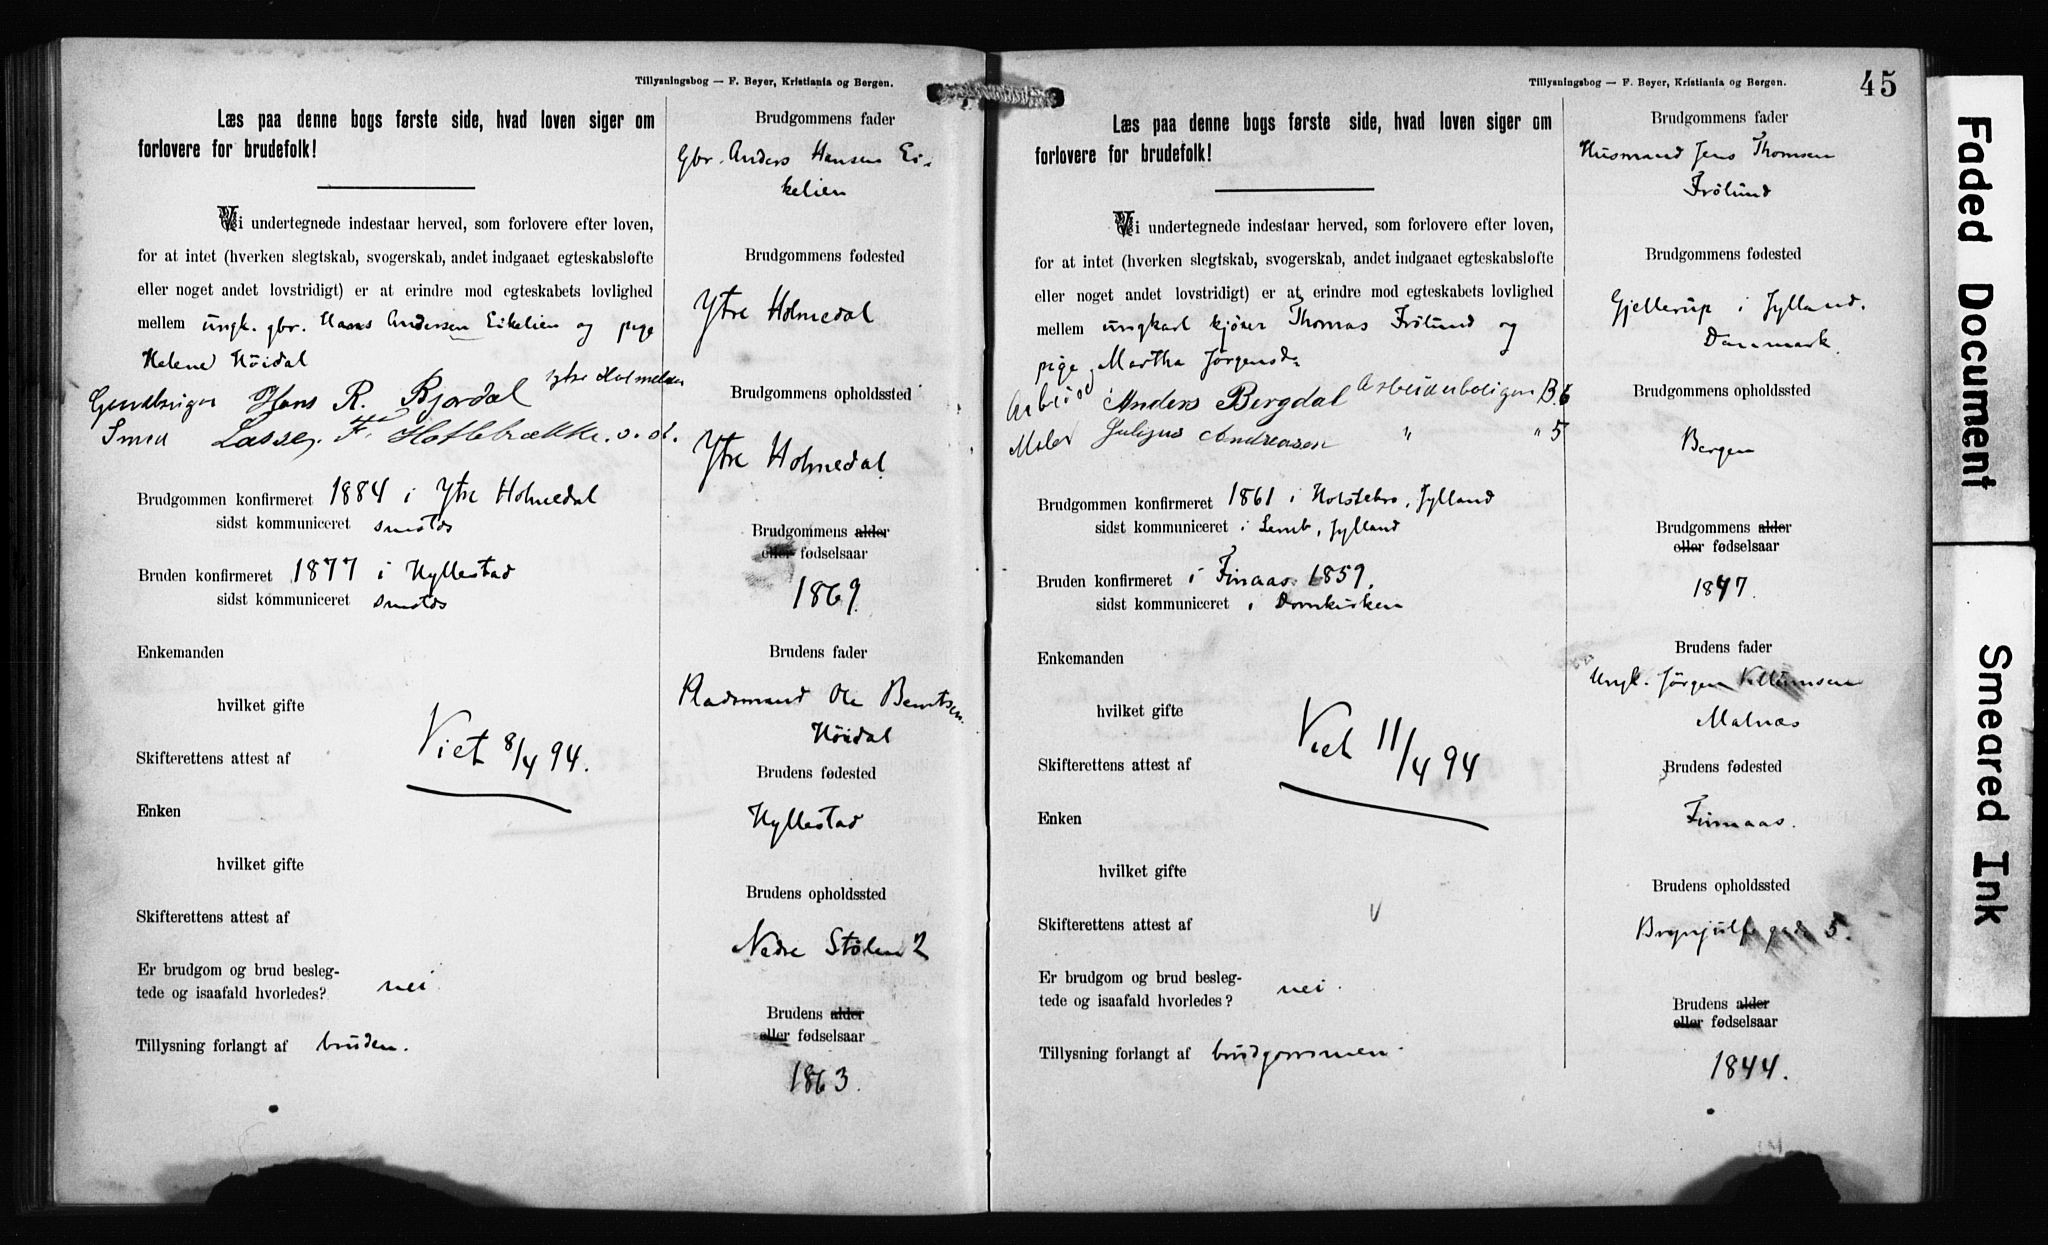 Tillysningsbog — F. Beyer, Kristiania og Bergen.
Læs paa denne bogs første side, hvad loven siger om
forlovere for brudefolk!
Vi undertegnede indestaar herved, som forlovere efter loven,
for at intet (hverken slegtskab, svogerskab, andet indgaaet egteskabsløfte
eller noget andet lovstridigt) er at erindre mod egteskabets lovlighed
mellem ungk. gbr. Hans Andersen Eikelien og pige
Helene Höidal
Gaardbruger Hans R. Bjordal ytre Holmedal
Smed Lasse F. s. st.
Brudgommen konfirmeret 1884 i Ytre Holmedal
sidst kommuniceret smstds
Bruden konfirmeret 1877 i Hyllestad
sidst kommuniceret smstds
Enkemanden
hvilket gifte
Viet 8/4 94.
Skifterettens attest af
Enken
hvilket gifte
Skifterettens attest af
Er brudgom og brud besleg-
tede og isaafald hvorledes? nei.
Tillysning forlangt af bruden.
Brudgommens fader
Gbr. Anders Hansen Ei-
kelien
Brudgommens fødested
Ytre Holmedal
Brudgommens opholdssted
Ytre Holmedal
Brudgommens alder
eller fødselsaar
1869.
Brudens fader
Pladsmand Ole Bentsen
Höidal
Brudens fødested
Hyllestad
Brudens opholdssted
Nedre Stölen 2
Brudens alder
eller fødselsaar
1863.
Tillysningsbog — F. Beyer, Kristiania og Bergen.
45
Læs paa denne bogs første side, hvad loven siger om
forlovere for brudefolk!
Vi undertegnede indestaar herved, som forlovere efter loven,
for at intet (hverken slegtskab, svogerskab, andet indgaaet egteskabsløfte
eller noget andet lovstridigt) er at erindre mod egteskabets lovlighed
mellem ungkarl kjører Thomas Frölund og
pige Martha Jørgensd.
Arbeider Anders Bergdal Arbeiderboligen B. 6
Maler Julius Andreasen " " 5
Brudgommen konfirmeret 1861 i Holstebro, Jylland
sidst kommuniceret i Lemb, Jylland
Bruden konfirmeret i Finaas 1859.
sidst kommuniceret i Domkirken
Enkemanden
hvilket gifte
Viet 11/4 94
Skifterettens attest af
Enken
hvilket gifte
Skifterettens attest af
Er brudgom og brud besleg-
tede og isaafald hvorledes? nei.
Tillysning forlangt af brudgommen.
Brudgommens fader
Husmand Jens Thomsen
Frölund
Brudgommens fødested
Gjellerup i Jylland.
Danmark.
Brudgommens opholdssted
Bergen
Brudgommens alder
eller fødselsaar
1847.
Brudens fader
Ungk. Jørgen Villumsen
Malnæs
Brudens fødested
Finnaas.
Brudens opholdssted
Brynjulfs gade 5.
Brudens alder
eller fødselsaar
1844.
Faded Document
Smeared Ink